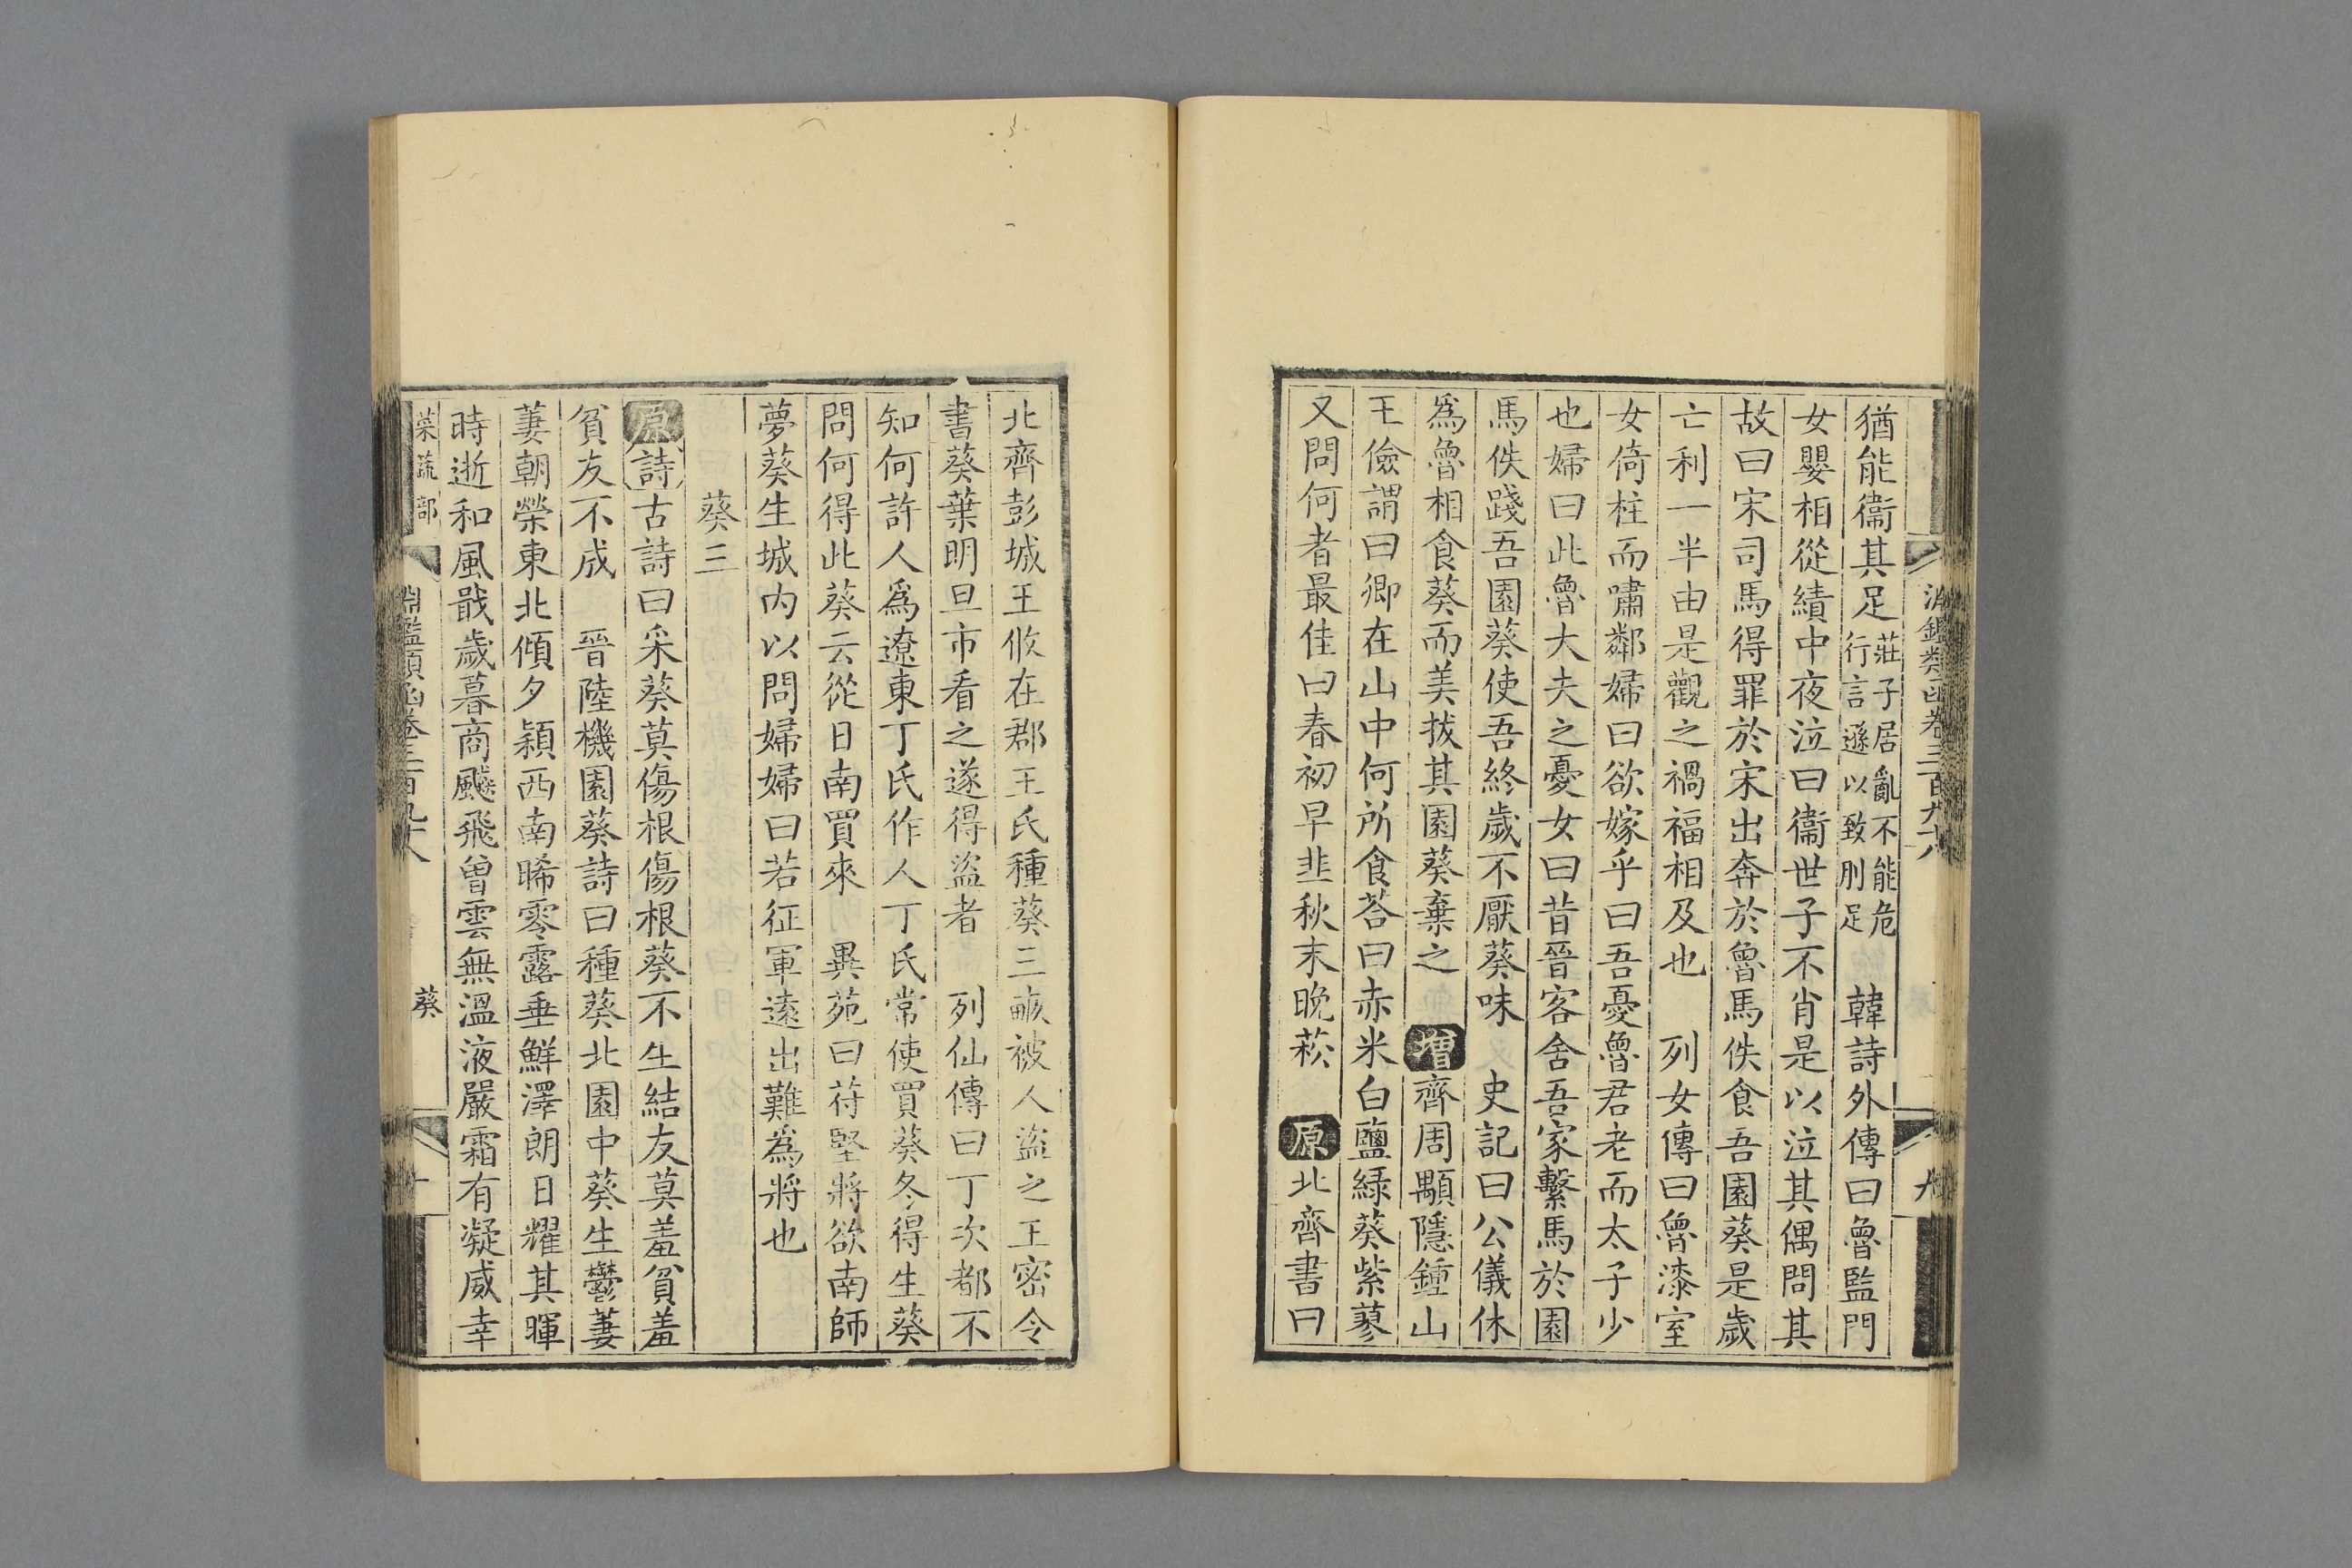 淵鑑類函卷三百九十八
九
猶能衞其足莊子居亂不能危行言遜以致刖足 韓詩外傳曰魯監門
女嬰相從績中夜泣曰衞世子不肖是以泣其偶問其
故曰宋司馬得罪於宋出奔於魯馬佚食吾園葵是歲
亡利一半由是觀之禍福相及也 列女傳曰魯漆室
女倚柱而嘯鄰婦曰欲嫁乎曰吾憂魯君老而太子少
也婦曰此魯大夫之憂女曰昔晉客舍吾家繫馬於園
馬佚踐吾園葵使吾終歲不厭葵味 史記曰公儀休
爲魯相食葵而美拔其園葵棄之 增齊周顒隱鍾山
王儉謂曰卿在山中何所食荅曰赤米白鹽綠葵紫蓼
又問何者最佳曰春初早韭秋末晚菘 原北齊書曰
北齊彭城王浟在郡王氏種葵三畞被人盜之王密令
書葵葉明旦市看之遂得盜者 列仙傳曰丁次都不
知何許人爲遼東丁氏作人丁氏常使買葵冬得生葵
問何得此葵云從日南買來 異苑曰苻堅將欲南師
夢葵生城内以問婦婦曰若征軍遠出難爲將也
葵三
原詩古詩曰采葵莫傷根傷根葵不生結友莫羞貧羞
貧友不成 晉陸機園葵詩曰種葵北園中葵生鬱萋
萋朝榮東北傾夕穎西南晞零露垂鮮澤朗日耀其暉
時逝和風戢歲暮商飈飛曾雲無溫液嚴霜有凝威幸
菜蔬部
淵鑑類函卷三百九十八
葵
十